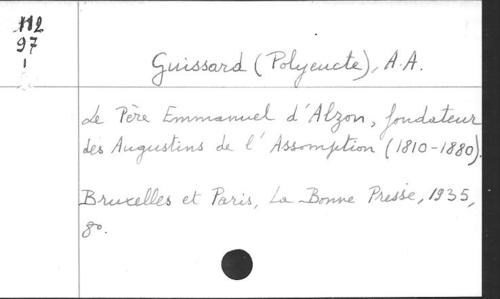 112
97
1
Guissard (Polyeucte), A.A.
Le Père Emmanuel d'Alzon, fondateur
des Augustins de l'Assomption (1810-1880).
Bruxelles et Paris, La Bonne Presse, 1935,
8o.